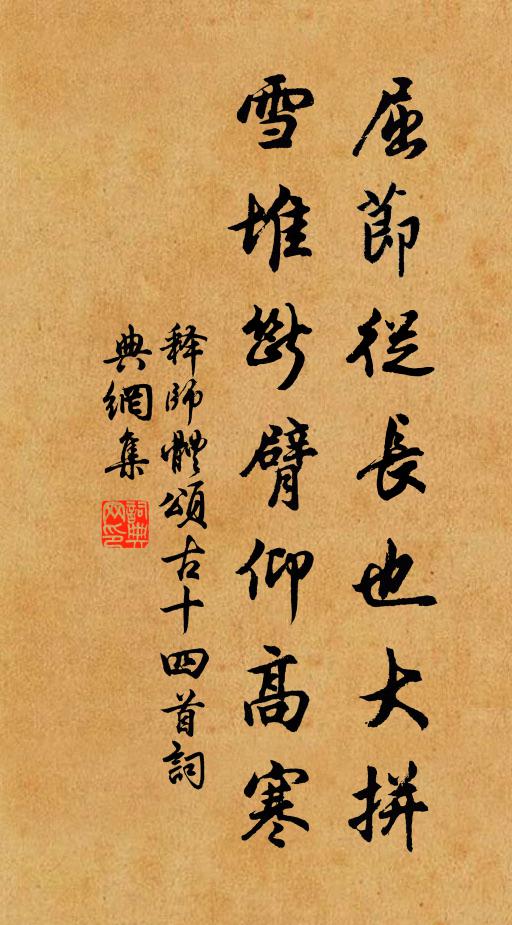 屈節從長也大拼
雪堆斷臂仰高寒
释師體頌古十四首詞
典網集
詞典
网印